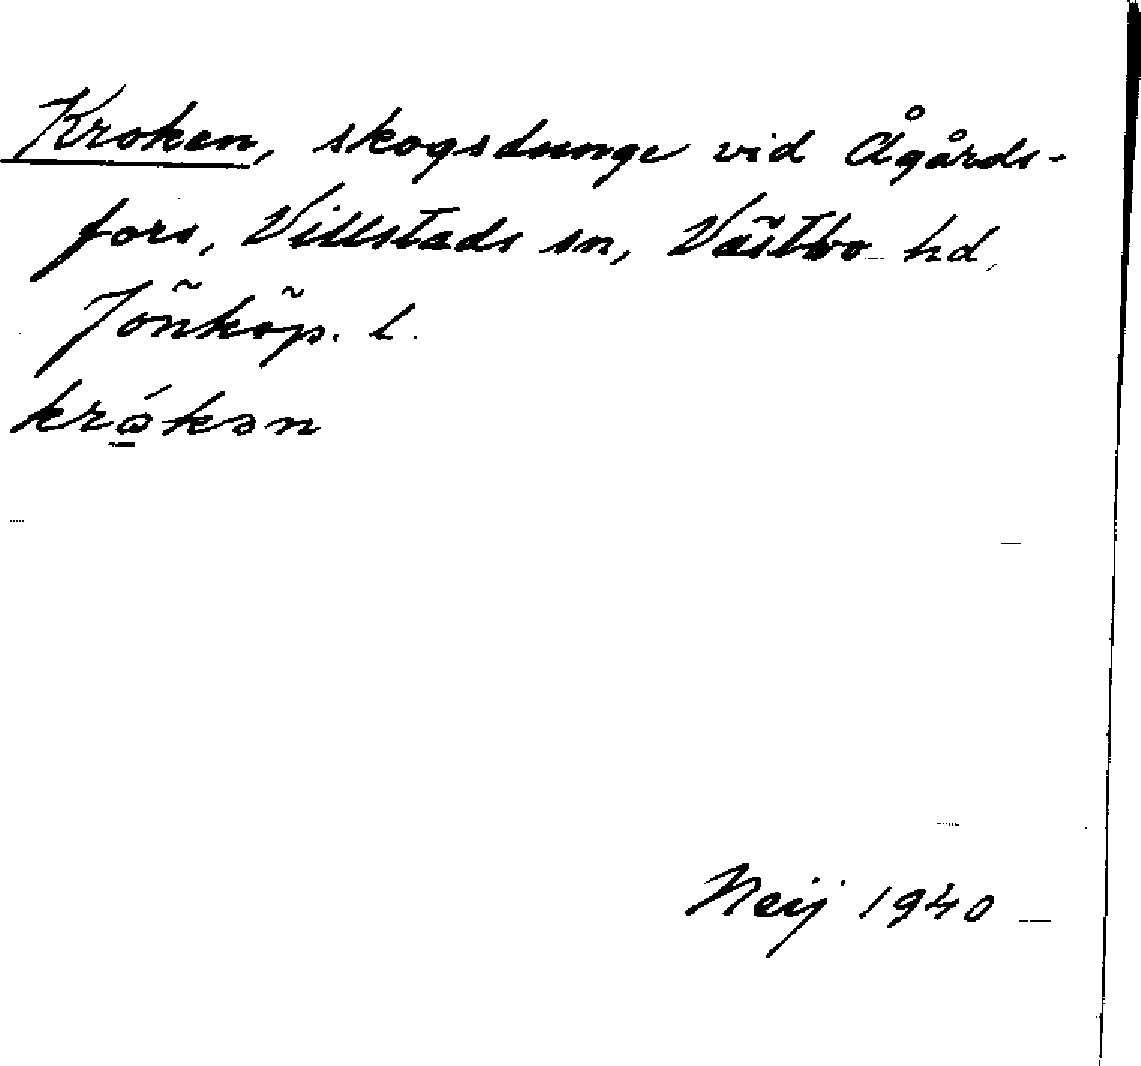 Kroken, skogsdunge vid Ågårds-
fors, Villstads sn, Västbo hd,
Jönköp. l.
kró̱kən
Neij 1940